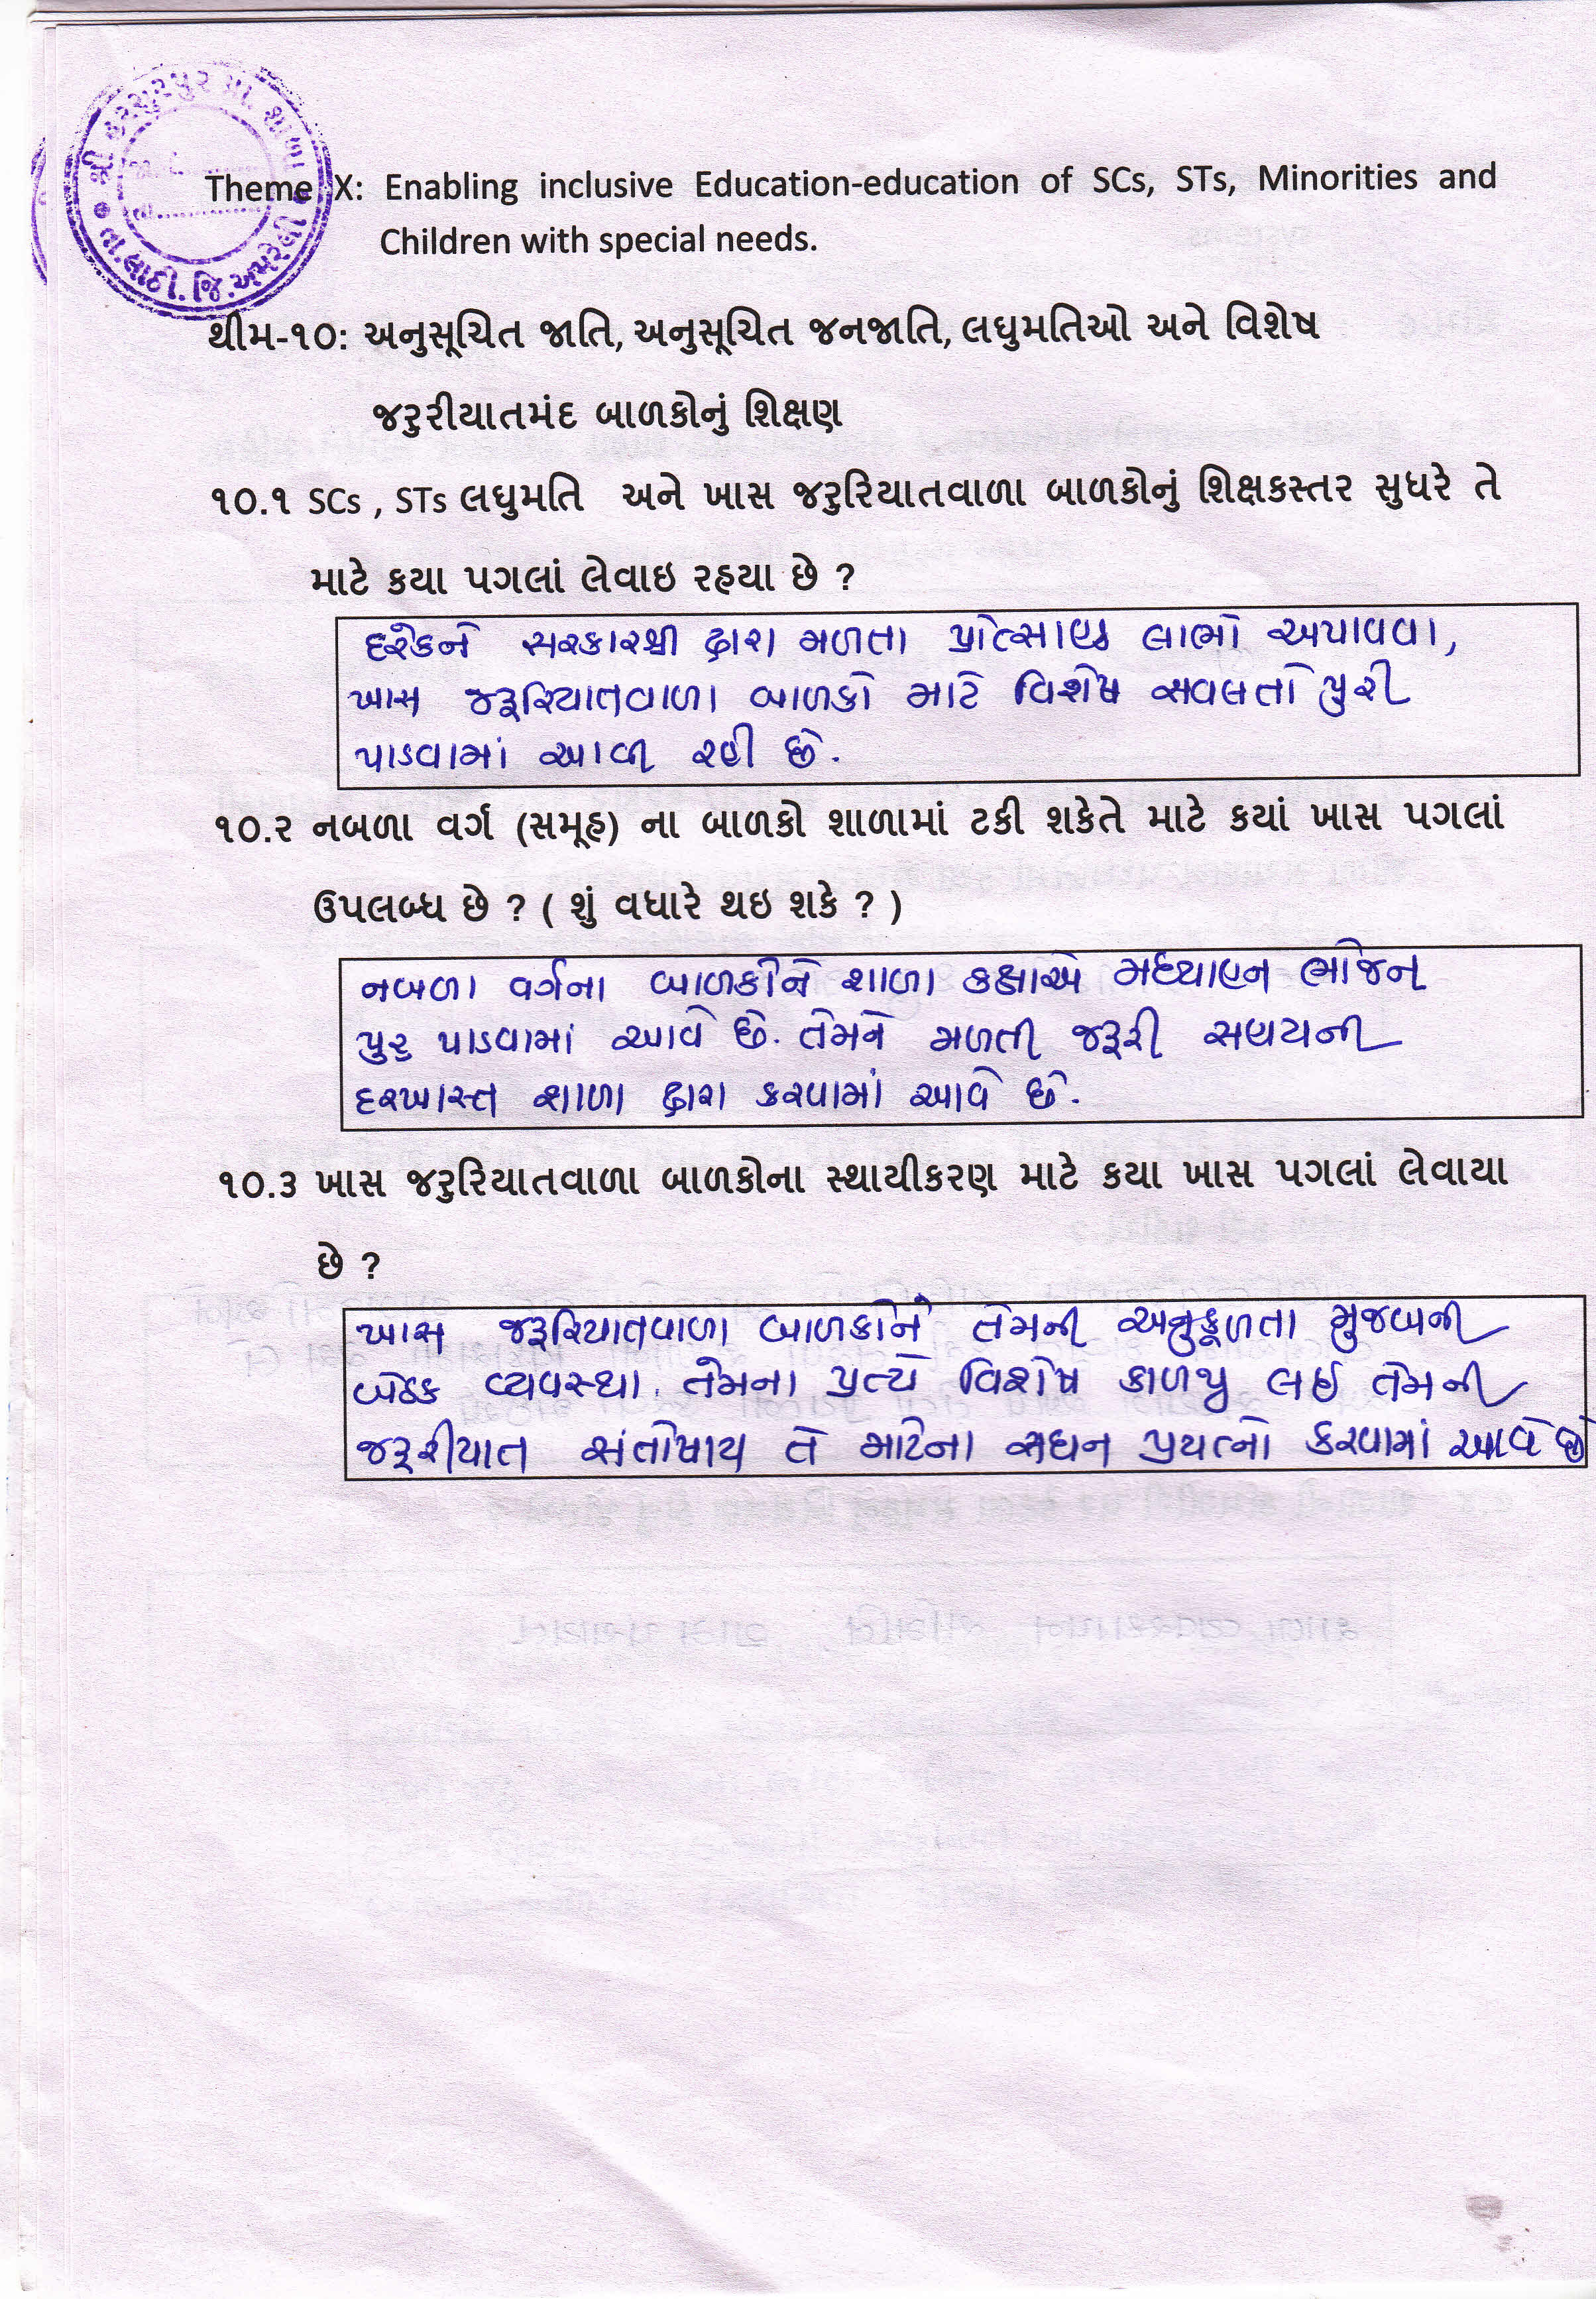 શ્રી હરસુરપુર પ્રા. શાળા
તા.લાઠી. જિ.અમરેલી
Theme X: Enabling inclusive Education-education of SCs, STs, Minorities and
Children with special needs.
થીમ-૧૦: અનુસૂચિત જાતિ, અનુસૂચિત જનજાતિ, લઘુમતિઓ અને વિશેષ
જરુરીયાતમંદ બાળકોનું શિક્ષણ
૧૦.૧ SCs , STs લઘુમતિ અને ખાસ જરુરિયાતવાળા બાળકોનું શિક્ષકસ્તર સુધરે તે
માટે કયા પગલાં લેવાઇ રહયા છે ?
દરેકને સરકારશ્રી દ્વારા મળતા લાભો અપાવવા,
ખાસ જરૂરિયાતવાળા બાળકો માટે વિશેષ સવલતો પુરી
પાડવામાં આવી રહી છે.
૧૦.૨ નબળા વર્ગ (સમૂહ) ના બાળકો શાળામાં ટકી શકેતે માટે કયાં ખાસ પગલાં
ઉપલબ્ધ છે ? ( શું વધારે થઇ શકે ? )
નબળા વર્ગના બાળકોને શાળા કક્ષાએ મધ્યાહન ભોજન
પુરુ પાડવામાં આવે છે. તેમને મળતી જરૂરી સહાયની
દરખાસ્ત શાળા દ્વારા કરવામાં આવે છે.
૧૦.૩ ખાસ જરુરિયાતવાળા બાળકોના સ્થાયીકરણ માટે કયા ખાસ પગલાં લેવાયા
છે ?
ખાસ જરૂરિયાતવાળા બાળકોને તેમની અનુકૂળતા મુજબની
બેઠક વ્યવસ્થા. તેમના પ્રત્યે વિશેષ કાળજી લઈ તેમની
જરૂરીયાત સંતોષાય તે માટેના સઘન પ્રયત્નો કરવામાં આવે છે